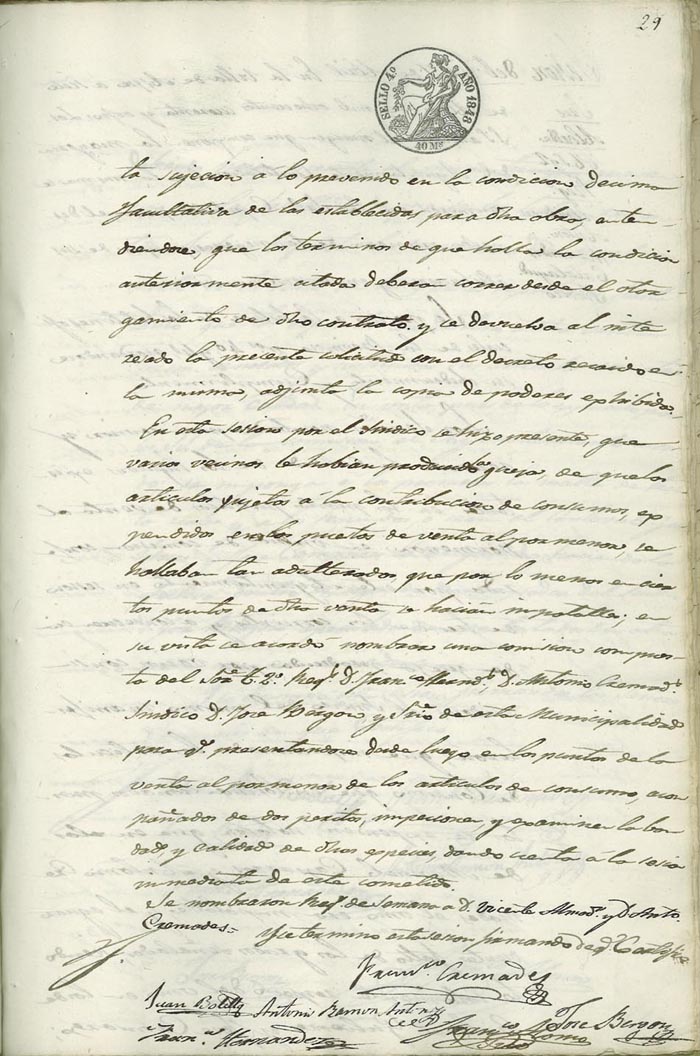 29
SELLO 4º AÑO 1848
40 Ms
ta sujecion a lo prevenido en la condicion decima
facultativa de las establecidas para dha obra, enten-
diendose, que los terminos de que habla la condicion
anteriormente citada deberan correr desde el otor-
gamiento de dho contrato. y se devuelva al inte
resado la presente solicitud con el decreto recaido en
la misma, adjunta la copia de poderes exhibida.
En esta sesion por el Sindico se hizo presente, que
varios vecinos le habian producido queja, de que los
articulos sujetos a la contribucion de consumos, ex
pendidos en los puestos de venta al pormenor, se
hallaban tan adulterados, que por lo menos en cier
tos puntos de dha venta se hacian impotables; en
su vista se acordó nombrar una comision compues-
ta del Sor. T. 2º Regr. D. Franco Hernz., D. Antonio Cremads.
Sindico D. Jose Bergon y Srio de esta Municipalidad
para q. presentandose desde luego en los puntos de la
venta al pormenor de los articulos de consumo, acom
pañados de dos peritos, inspeccionen y examinen la bon
dad y calidad de dhas especies, dando cuenta á la sesion
inmediata de este cometido.
Se nombraron Regs. de Semana a D. Vicente Almods. y D. Anto.
Cremades= Y se termino esta sesion firmando de q. Certifico
Franco. Cremades
Juan Botella Antonio Ramon Jose Bergon
Franco. Hernandez